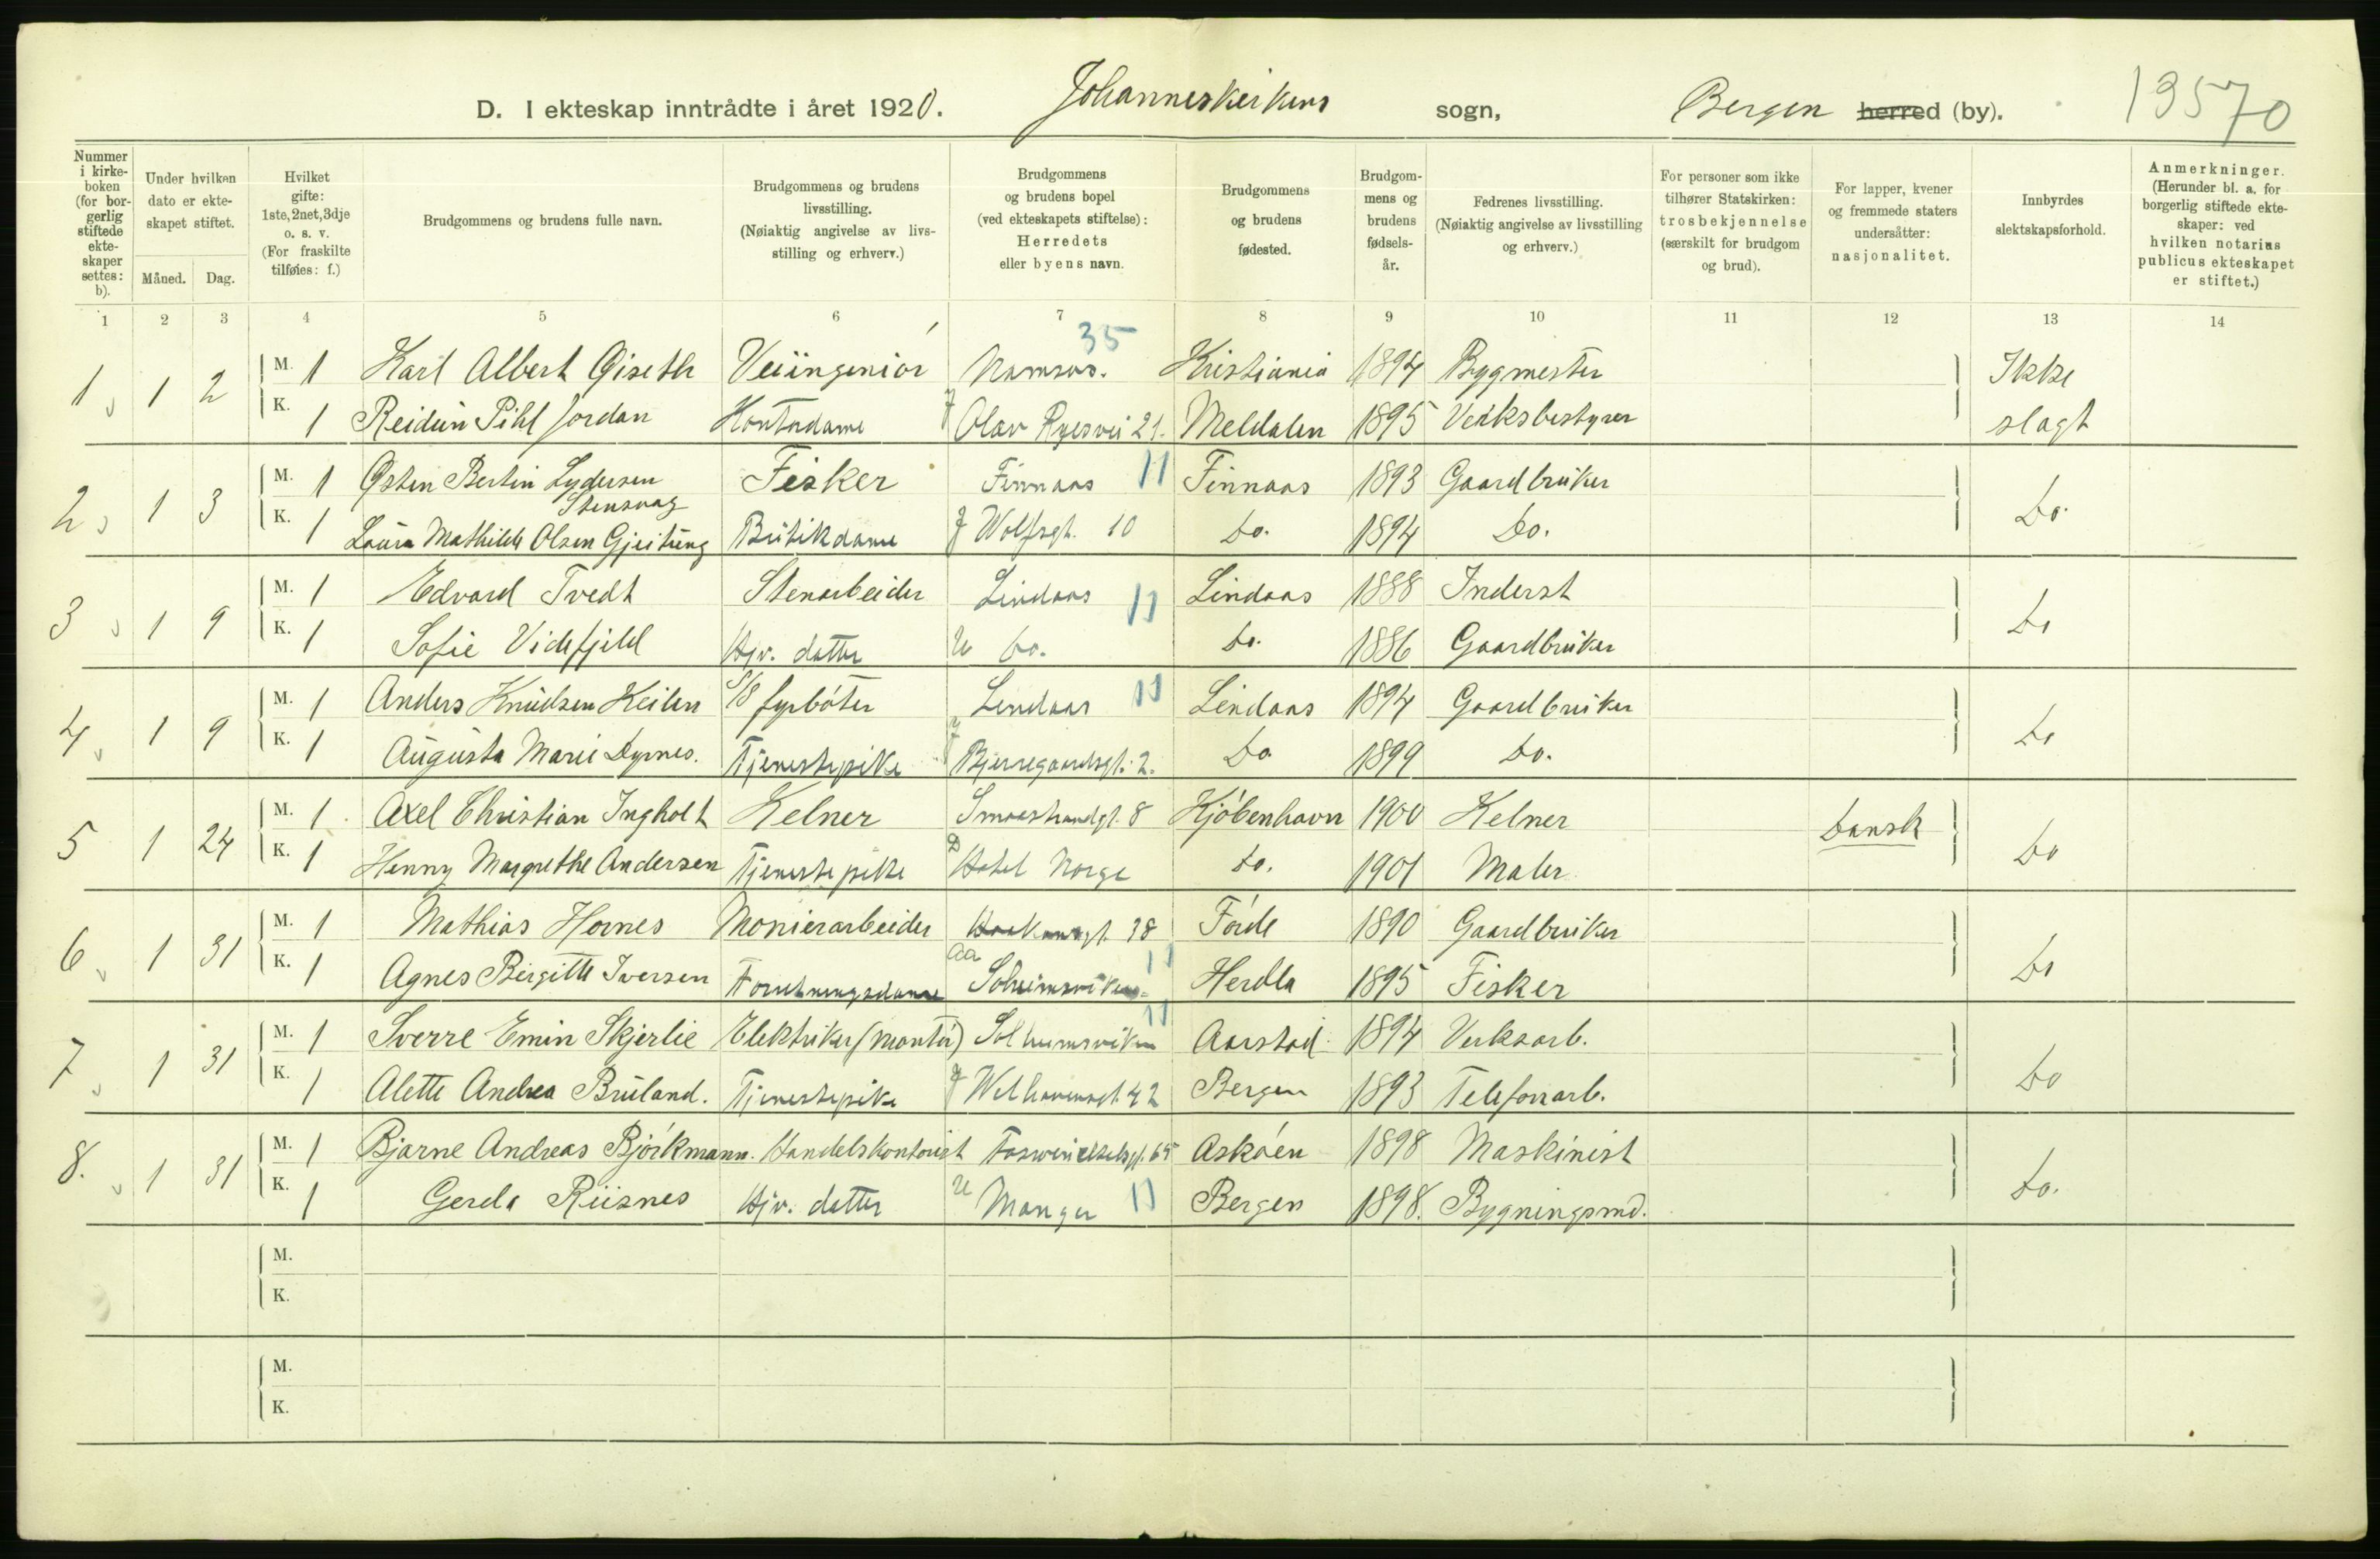 D. I ekteskap inntrådte i året 1920. Johanneskirkens sogn, Bergen herred (by). 13570
Nummer i kirkeboken (for borgerlig stiftede ekteskaper settes: b).
Under hvilken dato er ekteskapet stiftet.
Måned. Dag.
Hvilket gifte: 1ste, 2net, 3dje o. s. v. (For fraskilte tilføies: f.)
Brudgommens og brudens fulle navn.
Brudgommens og brudens livsstilling. (Nøiaktig angivelse av livsstilling og erhverv.)
Brudgommens og brudens bopel (ved ekteskapets stiftelse): Herredets eller byens navn.
Brudgommens og brudens fødested.
Brudgommens og brudens fødselsår.
Fedrenes livsstilling. (Nøiaktig angivelse av livsstilling og erhverv.)
For personer som ikke tilhører Statskirken: trosbekjennelse (særskilt for brudgom og brud).
For lapper, kvener og fremmede staters undersåtter: nasjonalitet.
Innbyrdes slektskapsforhold.
Anmerkninger. (Herunder bl. a. for borgerlig stiftede ekteskaper: ved hvilken notarius publicus ekteskapet er stiftet.)
1 2 3 4 5 6 7 8 9 10 11 12 13 14
35
1 1 2 M. 1 Karl Albert Giseth Veiingeniór Namsos. Kristiania 1894 Bygmester Ikke
K. 1 Reidun Pihl Jordan Kontordame Olav Ryesvei 21. Meldalen 1895 Verksbestyrer slagt
2 1 3 M. 1 Østen Bertin Lydersen Stensvag Fisker Finnaas 11 Finnaas 1893 Gaardbruker Do.
K. 1 Laura Mathilde Olsen Gjeitung Butikdame Wolfsgt. 10 Do. 1894 Do.
3 1 9 M. 1 Edvard Tvedt Stenarbeider Lindaas 11 Lindaas 1888 Inderst Do
K. 1 Sofie Videfjeld Hjv. datter U Do. Do. 1886 Gaardbruker
4 1 9 M. 1 Anders Knudsen Keilen S/S fyrbóter Lindaas 11 Lindaas 1894 Gaardbruker Do
K. 1 Augusta Marie Dyrnes. Tjenestepike Bjerregaardsgt. 2. Do 1899 Do.
5 1 24 M. 1 Axel Christian Ingholt Kelner Smaastrandgt. 8 Kjóbenhavn 1900 Kelner Dansk Do
K. 1 Henny Margrethe Andersen Tjenestepike Hotel Norge Do. 1901 Maler
6 1 31 M. 1 Mathias Hornes Monierarbeider Haakonsgt. 38 Fórde 1890 Gaardbruker Do
K. 1 Agnes Birgitte Iversen Forretningsdame Aa Solheimsviken 11 Herdla 1895 Fisker
7 1 31 M. 1 Sverre Emin Skjerlie Elektriker (montór) Solheimsviken 11 Aarstad 1894 Verksarb. Do
K. 1 Alette Andrea Bruland. Tjenestepike Welhavensgt. 42 Bergen 1893 Telefonarb.
8. 1 31 M. 1 Bjarne Andreas Bjórkmann. Handelskontorist Foswinckelsgt. 65 Askóen 1898 Maskinist Do.
K. 1 Gerda Riisnes Hjv. datter U Manger 11 Bergen 1898. Bygningsmd.
M.
K.
M.
K.